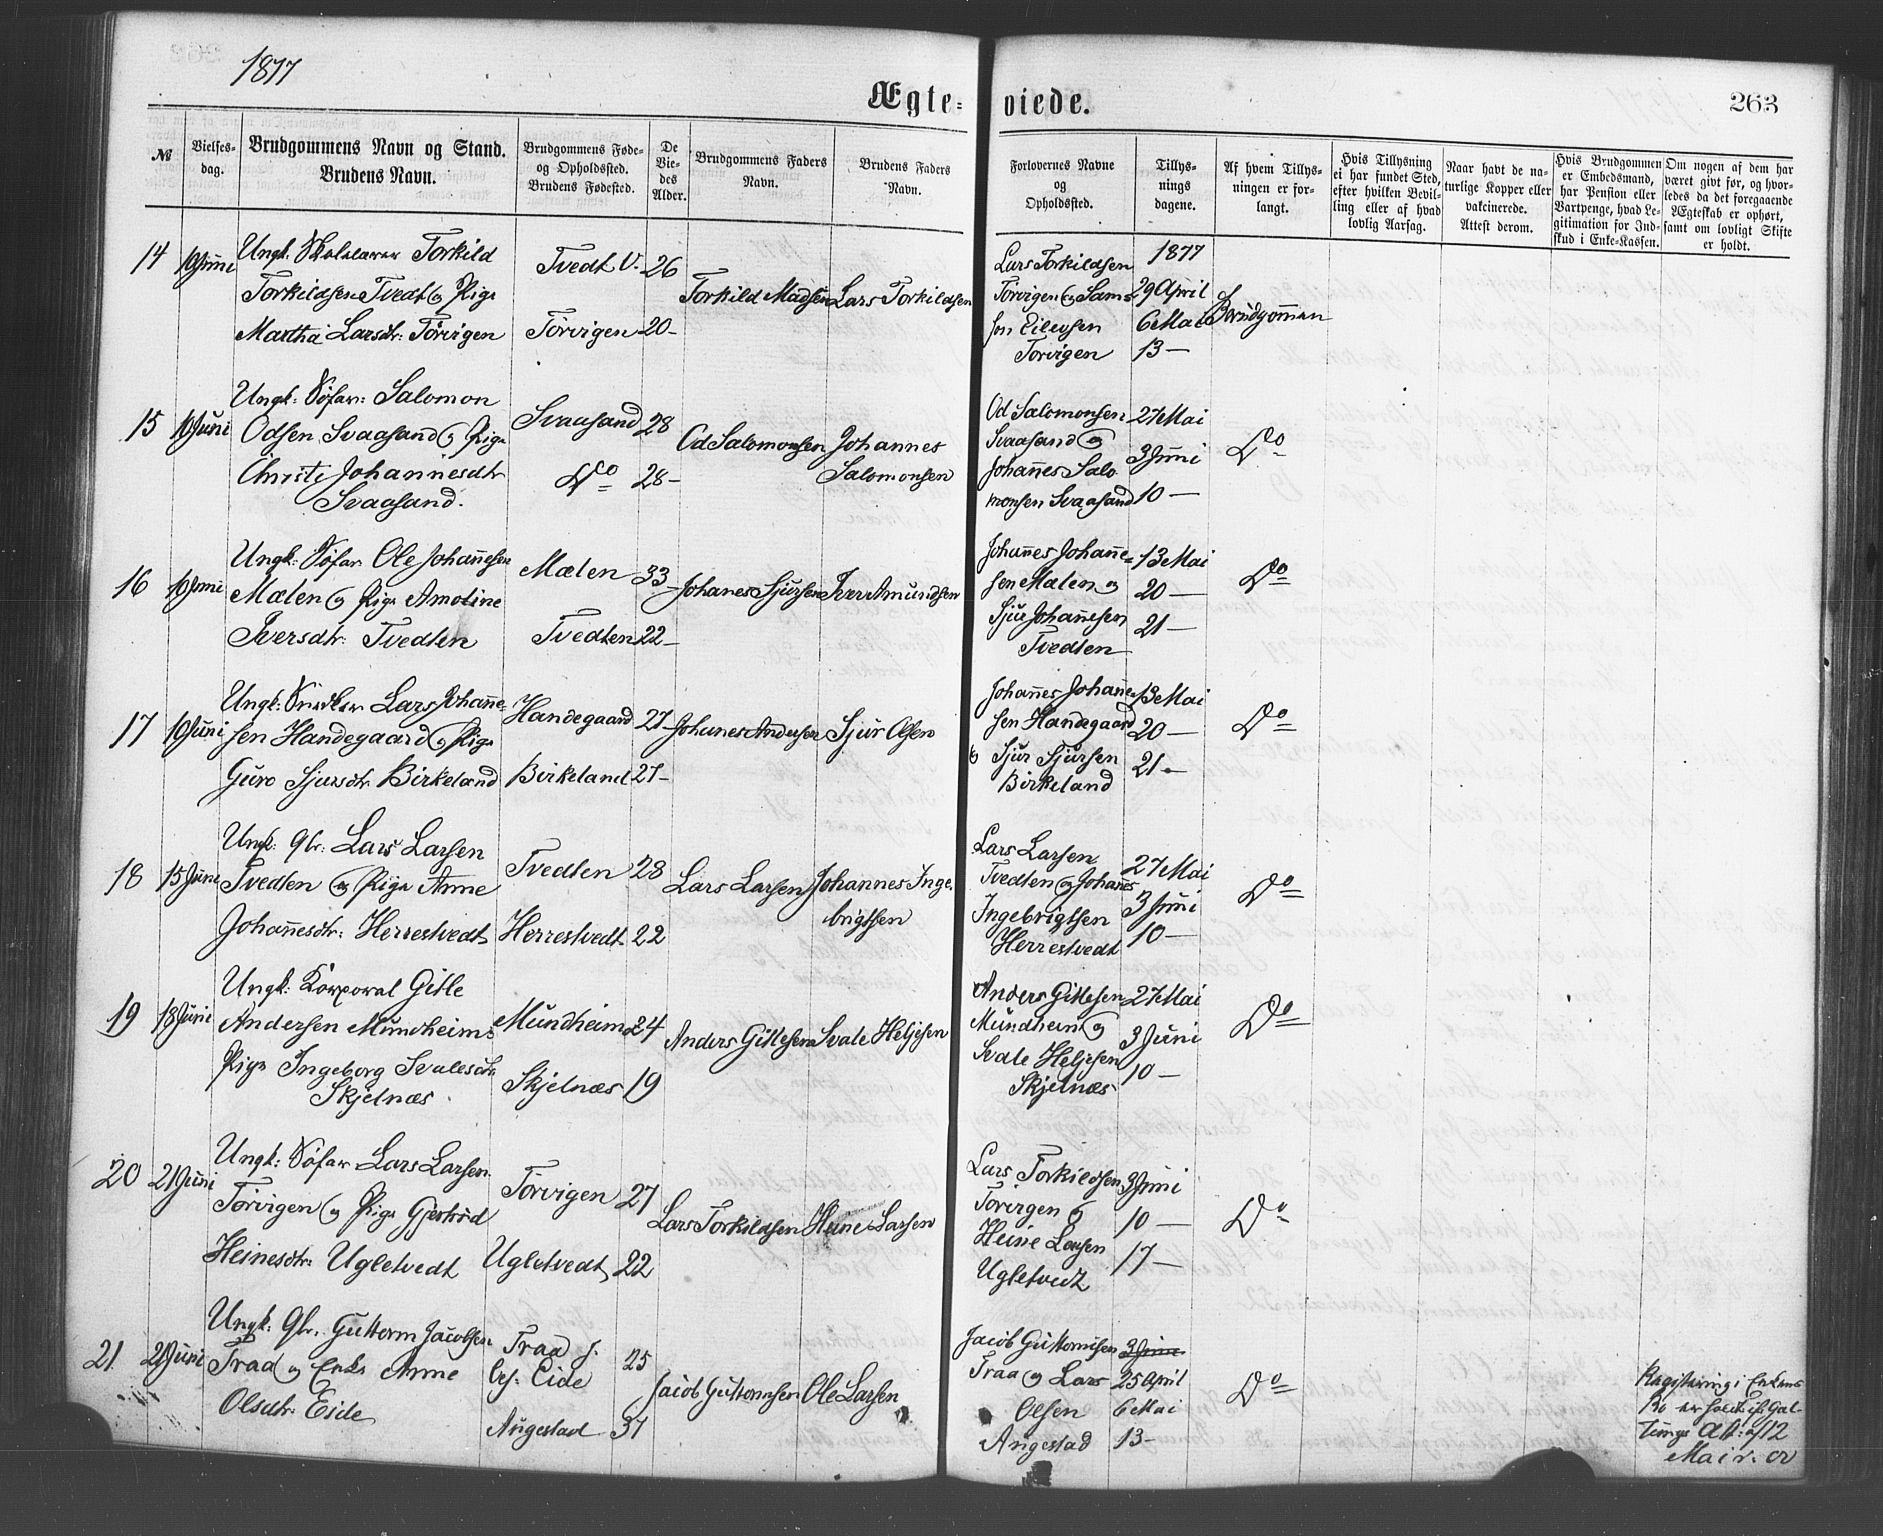 1877
Ægteviede.
263
№
Vielses-
dag.
Brudgommens Navn og Stand.
Brudens Navn.
Brudgommens Føde-
og Opholdssted.
Brudens Fødested.
De
Vie-
des
Alder.
Brudgommens Faders
Navn.
Brudens Faders
Navn.
Forlovernes Navne
og
Opholdssted.
Tillys-
nings
dagene.
Af hvem Tillys-
ningen er for-
langt.
Hvis Tillysning
ei har fundet Sted,
efter hvilken Bevil-
ling eller af hvad
lovlig Aarsag.
Naar havt de na-
turlige Kopper eller
vakcinerede.
Attest derom.
Hvis Brudgommen
er Embedsmand,
har Pension eller
Vartpenge, hvad Le-
gitimation for Ind-
skud i Enke-Kassen.
Om nogen af dem har
været givt før, og hvor-
ledes da det foregaaende
Ægteskab er ophørt,
samt om lovligt Skifte
er holdt.
14
10 Juni
Ungk. Skolelærer Torkild
Torkildsen Tvedt og Pige
Martha Larsdtr: Tørvigen
Tvedt V.
Tørvigen
26
20-
Torkild Madsen
Lars Torkildsen
Lars Torkildsen
Tørvigen og Sam-
son Eilevsen
Tørvigen
1877
29 April
6 Mai
13 —
Brudgommen
15
10 Juni
Ungk: Søfar: Salomon
Odsen Svaasand og Pige
Christi Johannesdtr
Svaasand.
Svaasand
Do
28
28-
Od Salomonsen
Johannes
Salomonsen
Od Salomonsen
Svaasand og
Johannes Salo
monsen Svaasand
27 Mai
3 Juni
10 —
Do
16
10 Juni
Ungk: Søfar Ole Johannesen
Mælen og Pige Amotine
Iversdtr: Tvedten
Mælen
Tvedten
33
22-
Johanes Sjursen
Iver Amundsen
Johannes Johanne-
sen Mælen og
Sjur Johannesen
Tvedten
13 Mai
20 —
21 —
Do
17
10 Juni
Ungk: Snedker Lars Johanne-
sen Handegaard og Pige
Guro Sjursdtr Birkeland
Handegaard
Birkeland
27
27-
Johanes Andersen
Sjur Olsen
Johannes Johanne-
sen Handegaard
og Sjur Sjursen
Birkeland
13 Mai
20 —
21 -
Do
18
15 Juni
Ungk: Gbr: Lars Larsen
Tvedten og Pige Anne
Johannesdtr: Herrestvedt
Tvedten
Herrestvedt
28
22
Lars Larsen
Johannes Inge-
brigtsen
Lars Larsen
Tvedten og Johannes
Ingebrigtsen
Herrestvedt
27 Mai
3 Juni
10 —
Do
19
18 Juni
Ungk: Korporal Gitle
Andersen Mundheim &
Pige Ingeborg Svalesdtr
Skjelnæs
Mundheim
Skjelnæs
24
19
Anders Gitlesen
Svale Heljesen
Anders Gitlesen
Mundheim og
Svale Heljesen
Skjelnæs
27 Mai
3 Juni
10 —
Do
20
21 Juni
Ungk: Søfar Lars Larsen
Tørvigen og Pige Gjertrud
Heinesdtr: Ugletvedt
Tørvigen
Ugletvedt
27
22
Lars Torkildsen
Heine Larsen
Lars Torkildsen
Tørvigen &
Heine Larsen
Ugletvedt
3 Juni
10 —
17 —
Do
21.
21 Juni
Ungk: Gbr. Guttorm Jacobsen
Traa og Enke Anne
Olsdtr Eide
Traa f.
Eide
Augestad
25
31
Jacob Guttormsen
Ole Larsen
Jacob Guttormsen
Traa og Lars
Olsen
Augestad
3 Juni
25 April
6 Mai
13-
Do
Registrering i Enkens
Bo er
tings Att: af 12
Mai